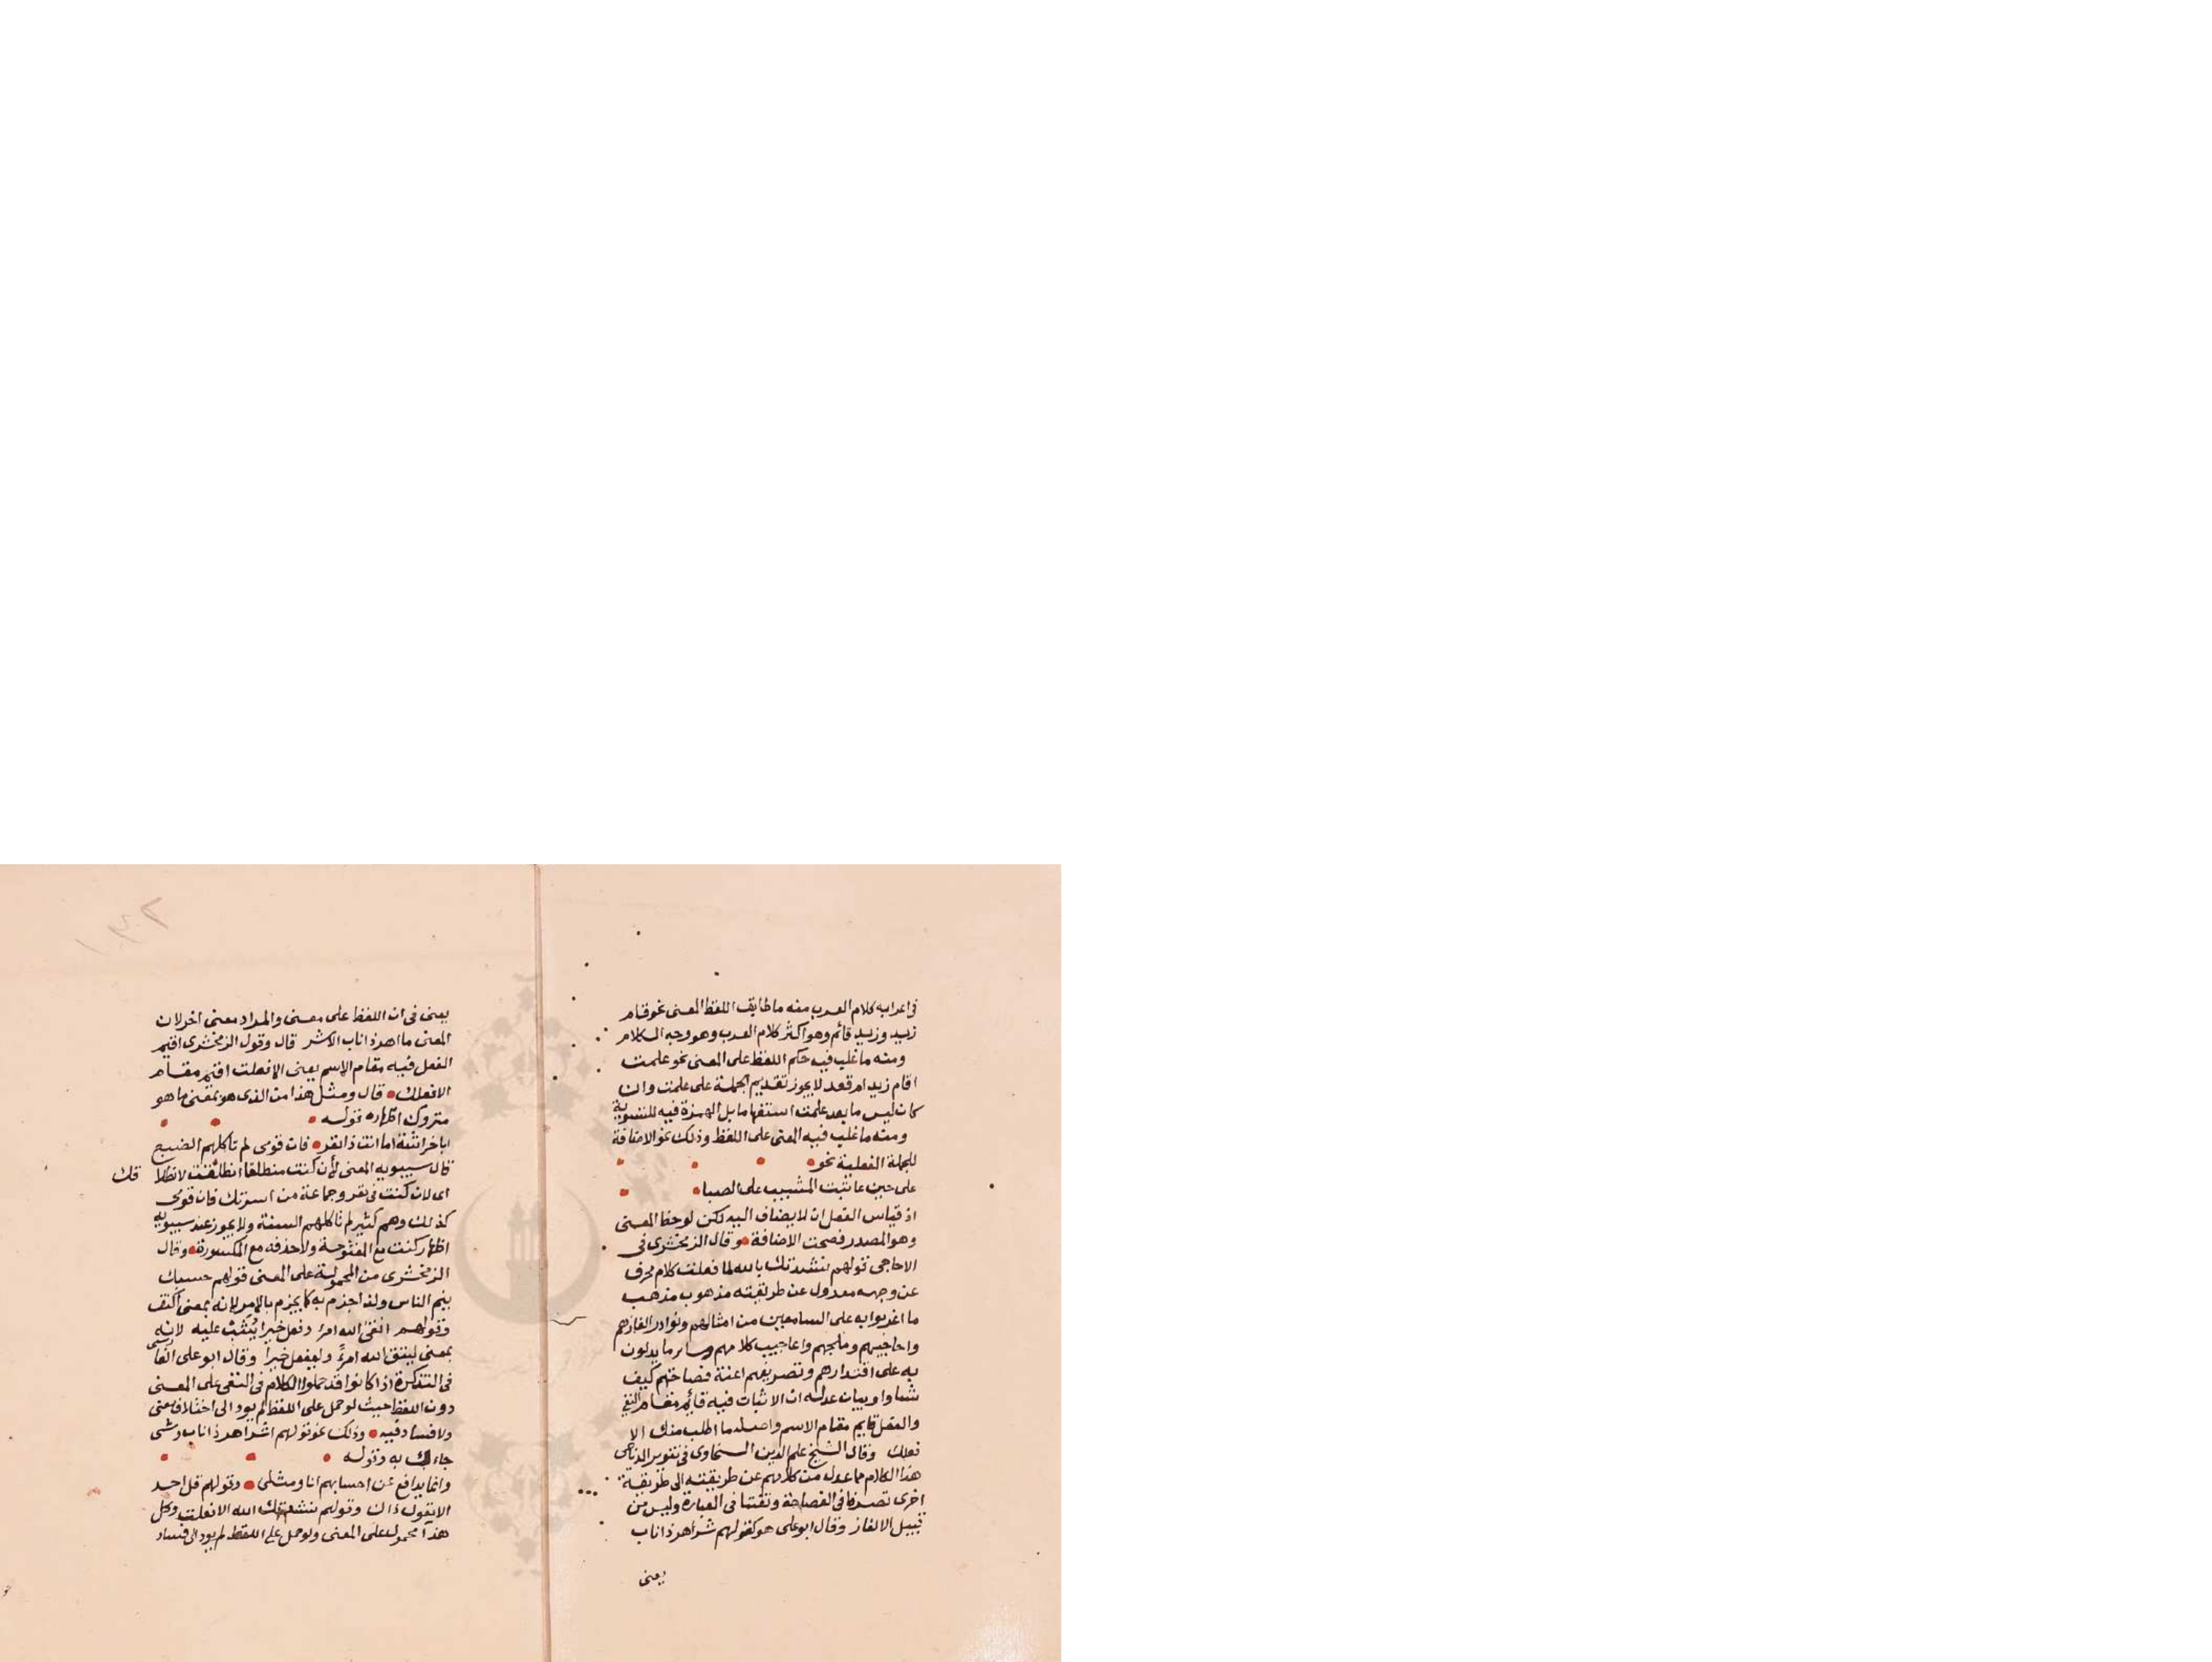 في اعرابه كلام العرب منه ما طابق اللفظ المعنى نحو قام
زيد وزيد قائم وهو اكثر كلام العرب وهو وجه الكلام
ومنه ما غلب فيه حكم اللفظ على المعنى نحو علمت
اقام زيد ام قعد لا يجوز تقديم الجملة على علمت وان
كان ليس ما بعد علمت استفهاما بل الهمزة فيه للتسوية
ومنه ما غلب فيه المعنى على اللفظ وذلك نحو الاضافة
للجملة الفعلية نحو
على حين عاتبت المشيب على الصبا
اذ قياس الفعل ان لا يضاف اليه لكن لوحظ المعنى
وهو المصدر فصحت الاضافة وقال الزمخشري في
الاحاجي قولهم نشدتك بالله لما فعلت كلام محرف
عن وجهه معدول عن طريقته مذهوب مذهب
ما اغربوا به على السامعين من امثالهم ونوادر الغازهم
واحاجيهم وملحهم واعاجيب كلامهم وساير ما يدلون
به على اقتدارهم وتصريفهم اعنة فصاحتهم كيف
شاوا وبيان عدله ان الاثبات فيه قائم مقام النفي
والفعل قايم مقام الاسم واصله ما اطلب منك الا
فعلك وقال الشيخ علم الدين السخاوى في تنوير الدياجي
هذا الكلام مما عدل من كلامهم عن طريقته الى طريقة
اخرى تصرفا في الفصاحة وتفننا في العبارة وليس من
قبيل الالغاز وقال ابو على هو كقولهم شر اهر ذا ناب
يعنى
يعنى فى ان اللفظ على معنى والمراد معنى اخر لان
المعنى ما اهر ذا ناب الا شر قال وقول الزمخشرى اقيم
الفعل فيه مقام الاسم يعنى الا فعلت اقيم مقام
الا فعلك قال ومثل هذا من الذى هو بمعنى ما هو
متروك اظهاره قوله
ابا خراشة اما انت ذا نفر فان قومى لم تاكلهم الضبع
قال سيبويه المعنى لأن كنت منطلقا انطلقت لانطلا قك
اى لان كنت فى نفر وجماعة من اسرتك فان قومى
كذلك وهم كثير لم تاكلهم السنة ولا يجوز عند سيبويه
اظهار كنت مع المفتوحة ولا حذفه مع المكسورة وقال
الزمخشرى من المحمولة على المعنى قولهم حسبك
ينم الناس ولذا جزم به كما يجزم بالامر لانه بمعنى اكتف
وقولهم اتقى الله امرؤ وفعل خيرا يثب عليه لانه
بمعنى ليتق الله امرؤ وليفعل خيرا وقال ابو على الفارسى
فى التذكرة اذا كانوا قد حملوا الكلام فى النفى على المعنى
دون اللفظ حيث لو حمل على اللفظ لم يود الى اختلاف معنى
ولا فساد فيه وذلك نحو قولهم شر اهر ذا ناب وشى
جاء بك به وقوله
وانما يدافع عن احسابهم انا ومثلى وقولهم قل احد
الا يقول ذاك وقولهم نشدتك الله الا فعلت وكل
هذا محمول على المعنى ولو حمل على اللفظ لم يود الى فساد